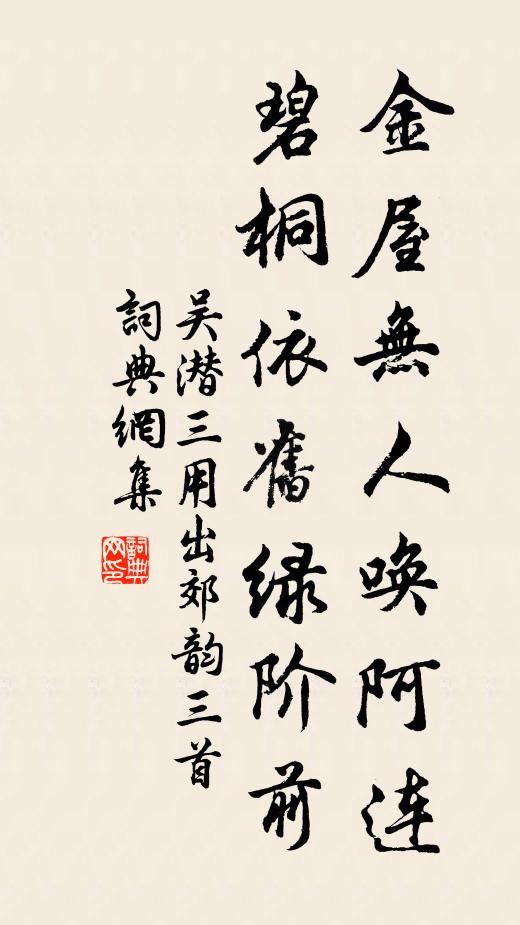 金屋無人唤阿连
碧桐依舊绿阶前
吴潜三用出郊韵三首
詞典網集
詞典网印